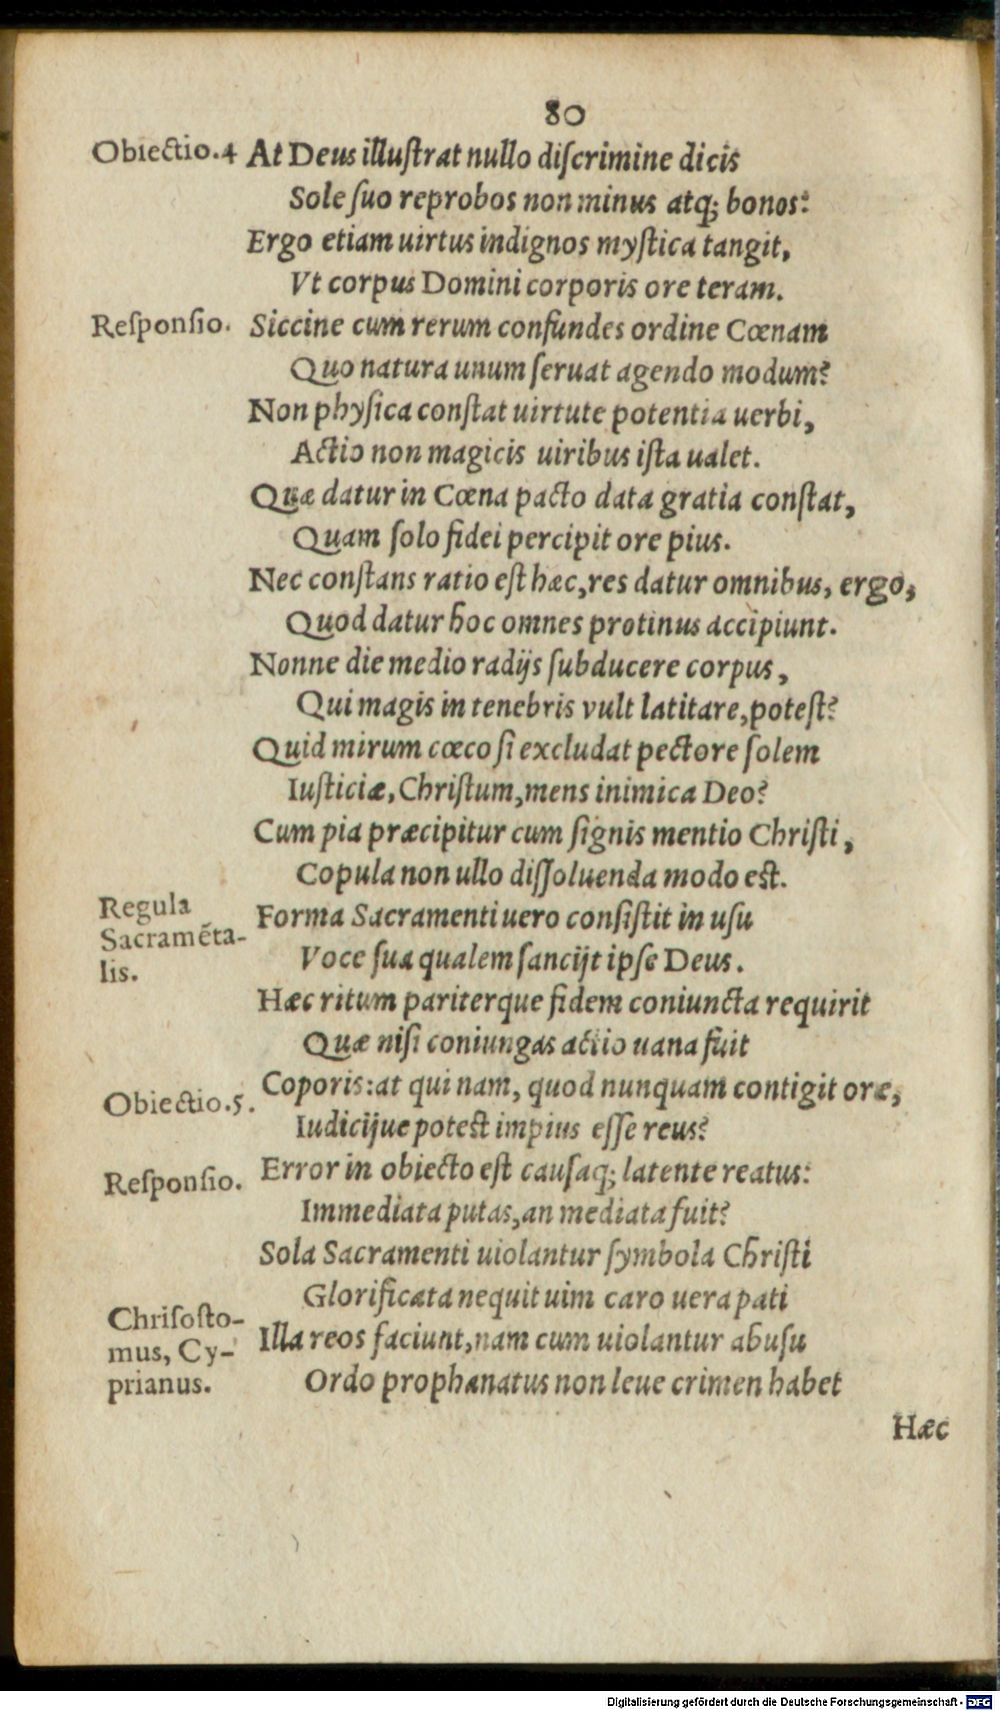 80
Obiectio.4 At Deus illuſtrat nullo diſcrimine dicis
Sole ſuo reprobos non minus atq; bonos:
Ergo etiam uirtus indignos myſtica tangit,
Vt corpus Domini corporis ore teram.
Reſponſio. Siccine cum rerum confundes ordine Cœnam
Quo natura unum ſeruat agendo modum?
Non phyſica conſtat uirtute potentia uerbi,
Actio non magicis uiribus iſta ualet.
Quæ datur in Cœna pacto data gratia conſtat,
Quam ſolo fidei percipit ore pius.
Nec conſtans ratio eſt hæc, res datur omnibus, ergo,
Quod datur hoc omnes protinus accipiunt.
Nonne die medio radijs ſubducere corpus,
Qui magis in tenebris vult latitare, poteſt?
Quid mirum cœco ſi excludat pectore ſolem
Iuſticiæ, Chriſtum, mens inimica Deo?
Cum pia præcipitur cum ſignis mentio Chriſti,
Copula non ullo diſſoluenda modo eſt.
Regula
Sacramẽta-
lis.
Forma Sacramenti uero conſiſtit in uſu
Voce ſua qualem ſancijt ipſe Deus.
Hæc ritum pariterque fidem coniuncta requirit
Quæ niſi coniungas actio uana fuit
Obiectio.5. Coporis: at qui nam, quod nunquam contigit oræ,
Iudicijue poteſt impius eſſe reus?
Reſponſio. Error in obiecto eſt cauſaq; latente reatus:
Immediata putas, an mediata fuit?
Sola Sacramenti uiolantur ſymbola Chriſti
Glorificata nequit uim caro uera pati
Chriſoſto-
mus, Cy-
prianus.
Illa reos faciunt, nam cum uiolantur abuſu
Ordo prophanatus non leue crimen habet
Hæc
Digitalisierung gefördert durch die Deutsche Forschungsgemeinschaft - DFG